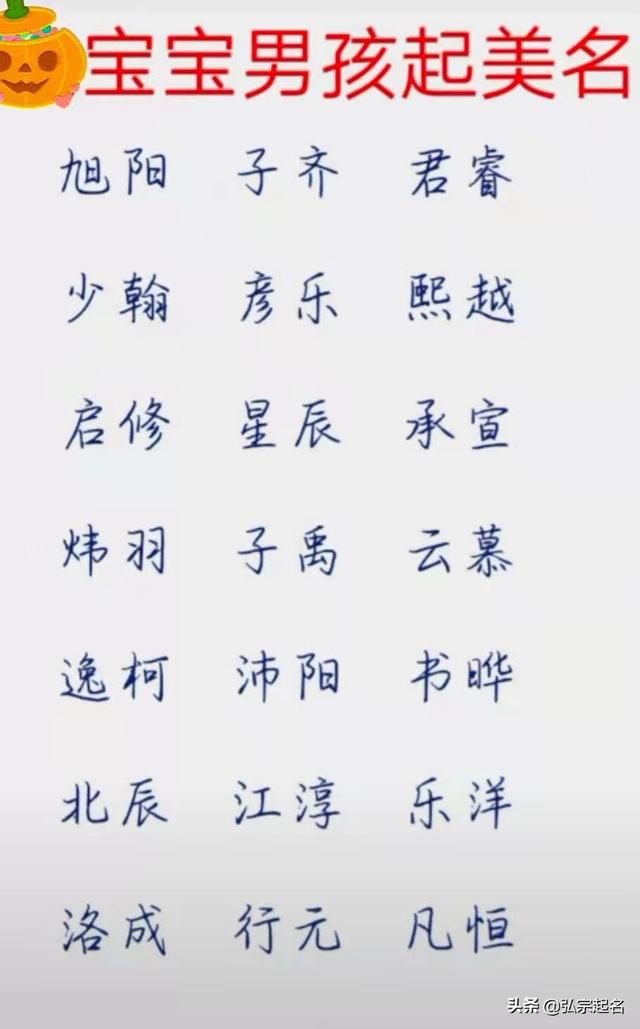 宝宝男孩起美名
旭阳 子齐 君睿
少翰 彦乐 熙越
启修 星辰 承宣
炜羽 子禹 云慕
逸柯 沛阳 书晔
北辰 江淳 乐洋
洛成 行元 凡恒
头条 @弘宗起名